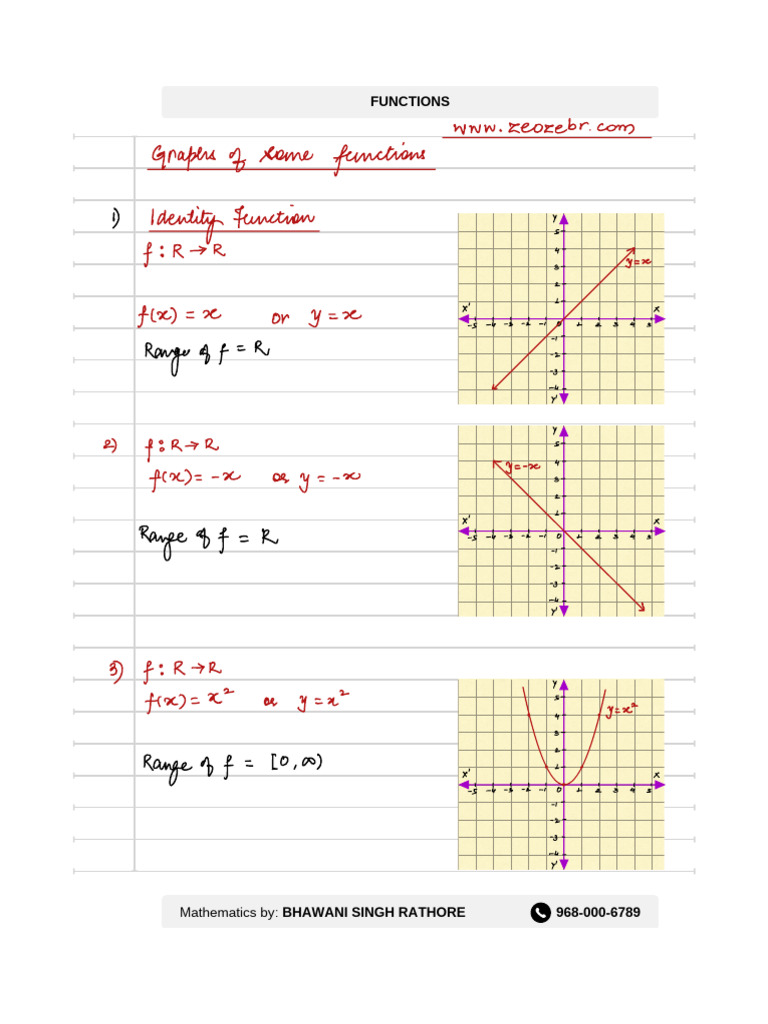 FUNCTIONS
www.zeozebr.com
Graphs of some functions
1) Identity Function
f : R → R
f(x) = x or y = x
Range of f = R
Y
5
4
3
2
1
y=x
X' -5 -4 -3 -2 -1 0 1 2 3 4 5 X
-1
-2
-3
-4
Y'
2) f : R → R
f(x) = -x or y = -x
Range of f = R
Y
5
4
3
2
1
y=-x
X' -5 -4 -3 -2 -1 0 1 2 3 4 5 X
-1
-2
-3
-4
Y'
3) f : R → R
f(x) = x² or y = x²
Range of f = [0, ∞)
Y
5
4
3
2
1
y=x²
X' -5 -4 -3 -2 -1 0 1 2 3 4 5 X
-1
-2
-3
-4
Y'
Mathematics by: BHAWANI SINGH RATHORE 968-000-6789